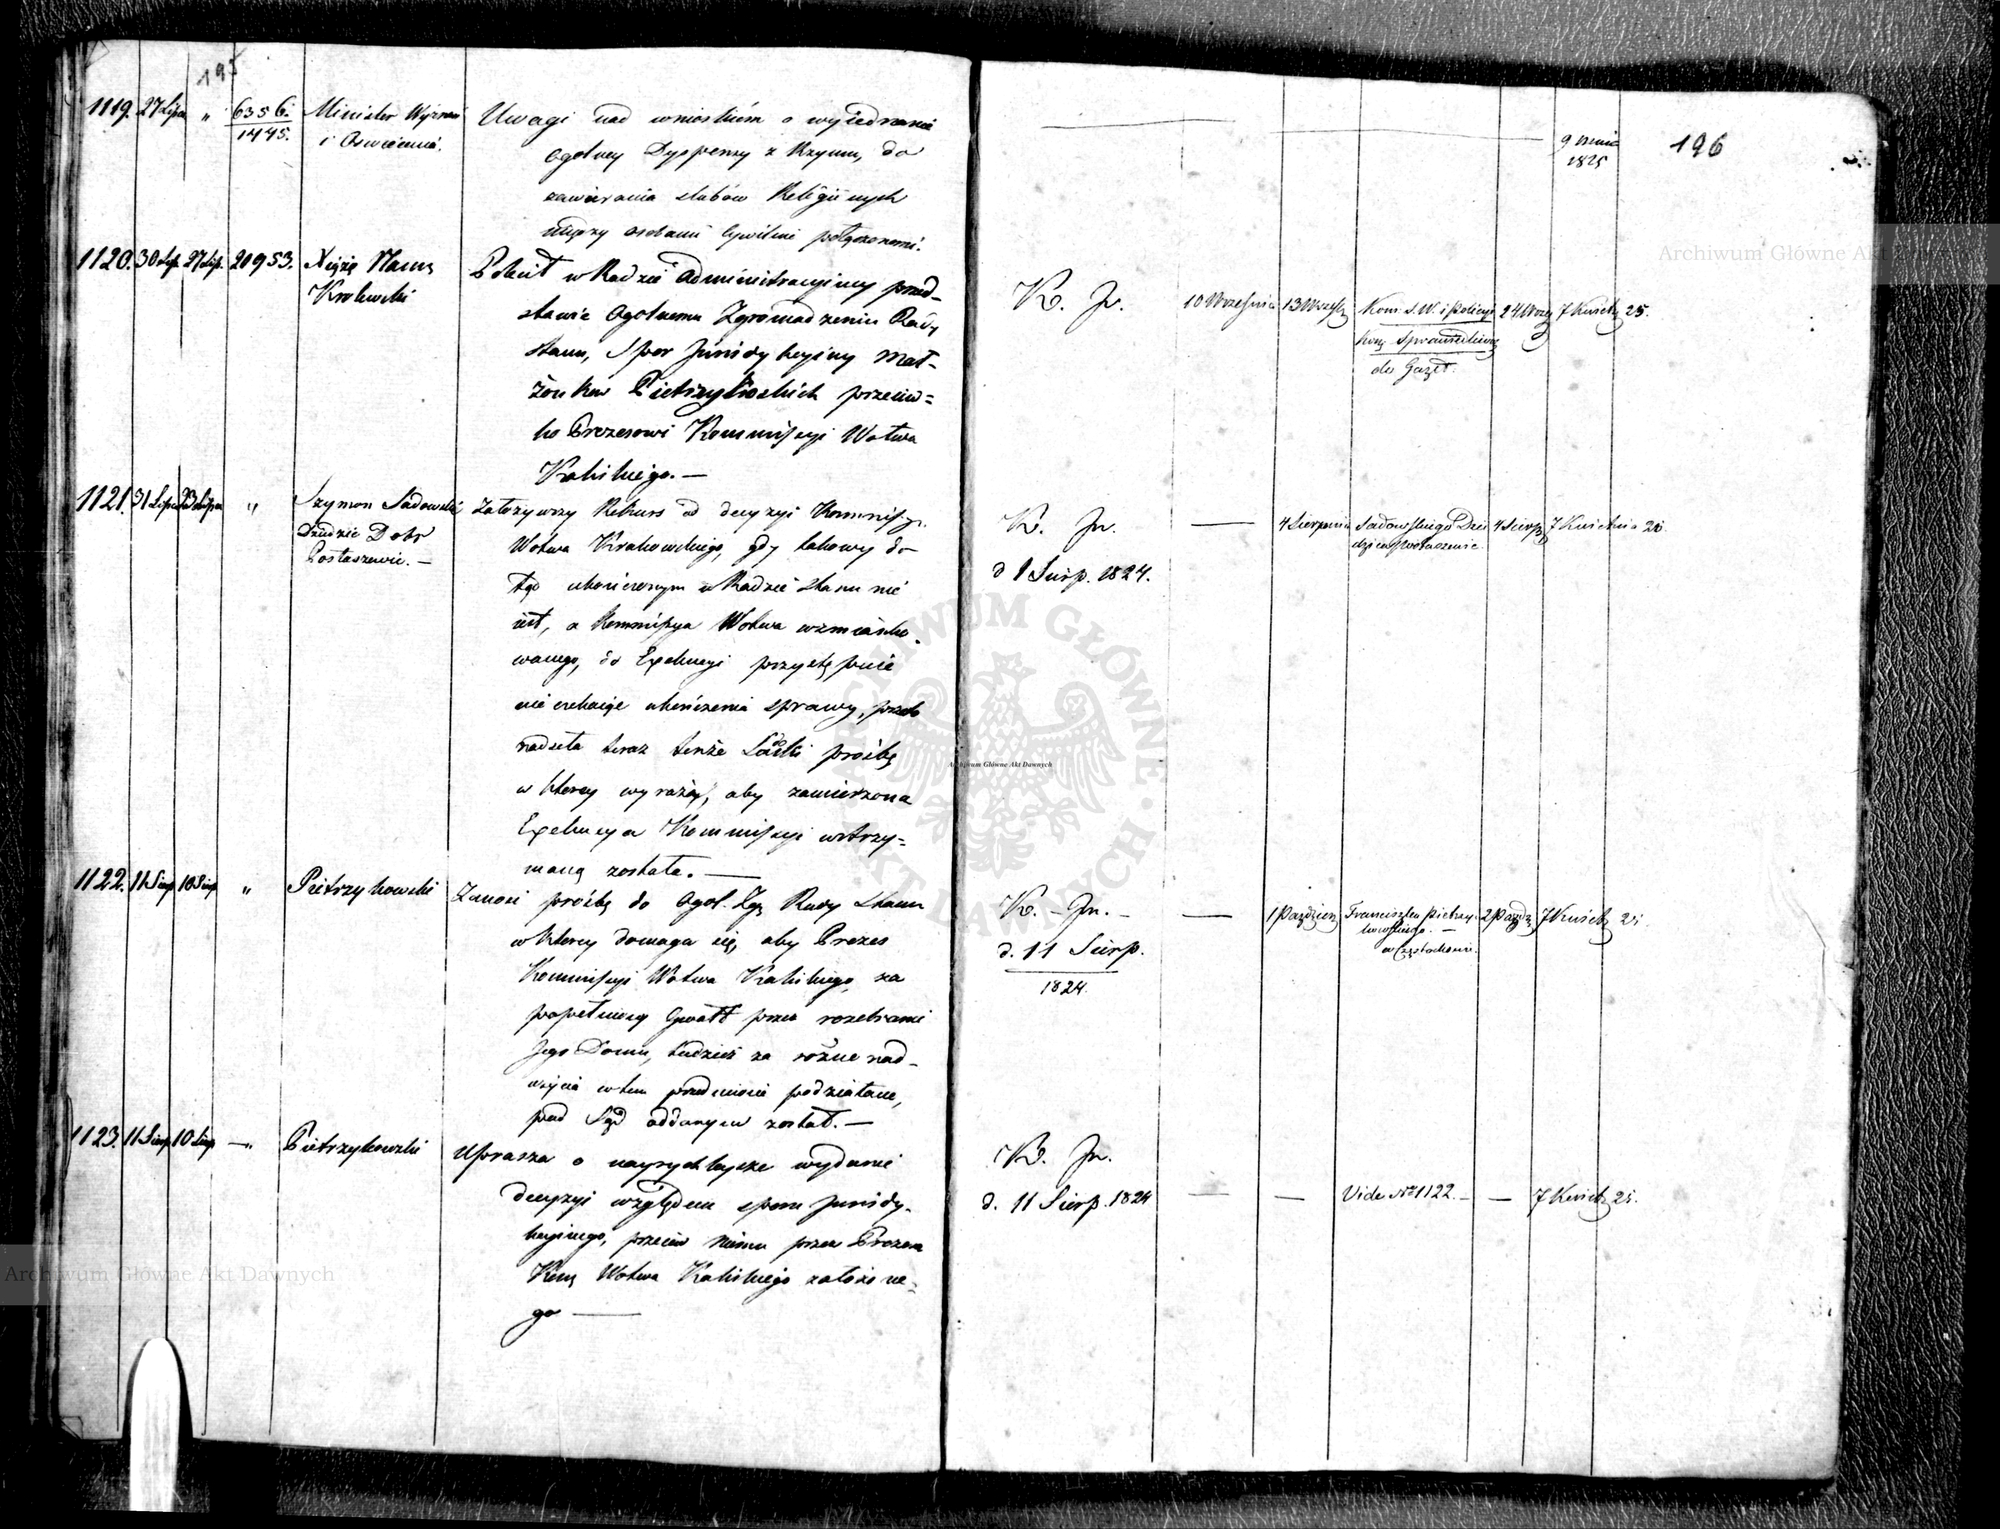 195
1119. 27 Lipca „ 6356. Minister Wyznań
1445.
i Oświecenia.
Uwagi nad wnioskiem o wyiednanie
ogolney Dyspensy z Rzymu, do
zawierania slubów Religiinych
między osobami Cywilnie połączonemi.
1120. 30 Lip. 27 Lip. 20953. Xiążę Namq
Krolewski
Polecił w Radzie Administracyiney przed-
stawić Ogolnemu Zgromadzeniu Rady
Stanu, Spor Jurisdykcyiny Mał-
żonkow Pietrzykoskich przeciw=
ko Prezesowi Kommissyi Wotwa
Kaliskiego. —
1121. 31 Lipca 23 Lipca „ Szymon Sadowski
Dziedzic Dobr
Postaszewic. —
Założywszy Rekurs od decyzyi Kommissyi
Wotwa Krakowskiego, gdy takowy do
tąd ukończonym w Radzie Stanu nie
iest, a Kommissya Wotwa wzmianko-
wanego, do Exekucyi przystępuie
nie czekaiąc ukończenia sprawy, przeto
nadseła teraz tenże Sadski prośbę
w ktorey wyraża, aby zamierzona
Exekucya Kommissyi wstrzy=
maną została. —
1122. 11 Sierp 10 Sierp „ Pietrzykowski
Zanosi prośbę do Ogol. Zgę Rady Stanu
w ktorey domaga się, aby Prezes
Kommissyi Wotwa Kaliskiego, za
popełniony Gwałt przez rozebranie
Jego Domu, tudzież za rożne nad-
użycia w tem przedmiocie podziałane,
pod Sąd oddanym został. —
1123. 11 Sierp 10 Sierp — „ Pietrzykowski
Uprasza o nayrychleysze wydanie
decyzyi względem sporu Jurisdy-
kcyinego, przeciw niemu przez Prezesa
Komę Wotwa Kaliskiego założone-
go —
196
9 Maia
1825
K. Jn. 10 Września 13 Wrześ Kom. S. W. i Policyi 24 Wrze 7 Kwiet 25.
Komę Sprawiedliwoś
do Gazet.
K. Jn. — 4 Sierpnia Sadowskiego Dzie 4 Sierp 7 Kwietnia 25
dzica Postaszewic
d 1 Sierp. 1824.
K. - Jn. - — 1 Paździer Franciszka Pietrzy- 2 Paźdz 7 Kwiet 25
kowskiego. —
w Częstochowie.
d. 11 Sierp.
1824.
K. Jn.
d. 11 Sierp. 1824 — — Vide No 1122. - — 7 Kwiet 25.
Archiwum Główne Akt Dawnych
Archiwum Główne Akt Dawnych
Archiwum Główne Akt Dawnych
ARCHIWUM GŁÓWNE AKT DAWNYCH